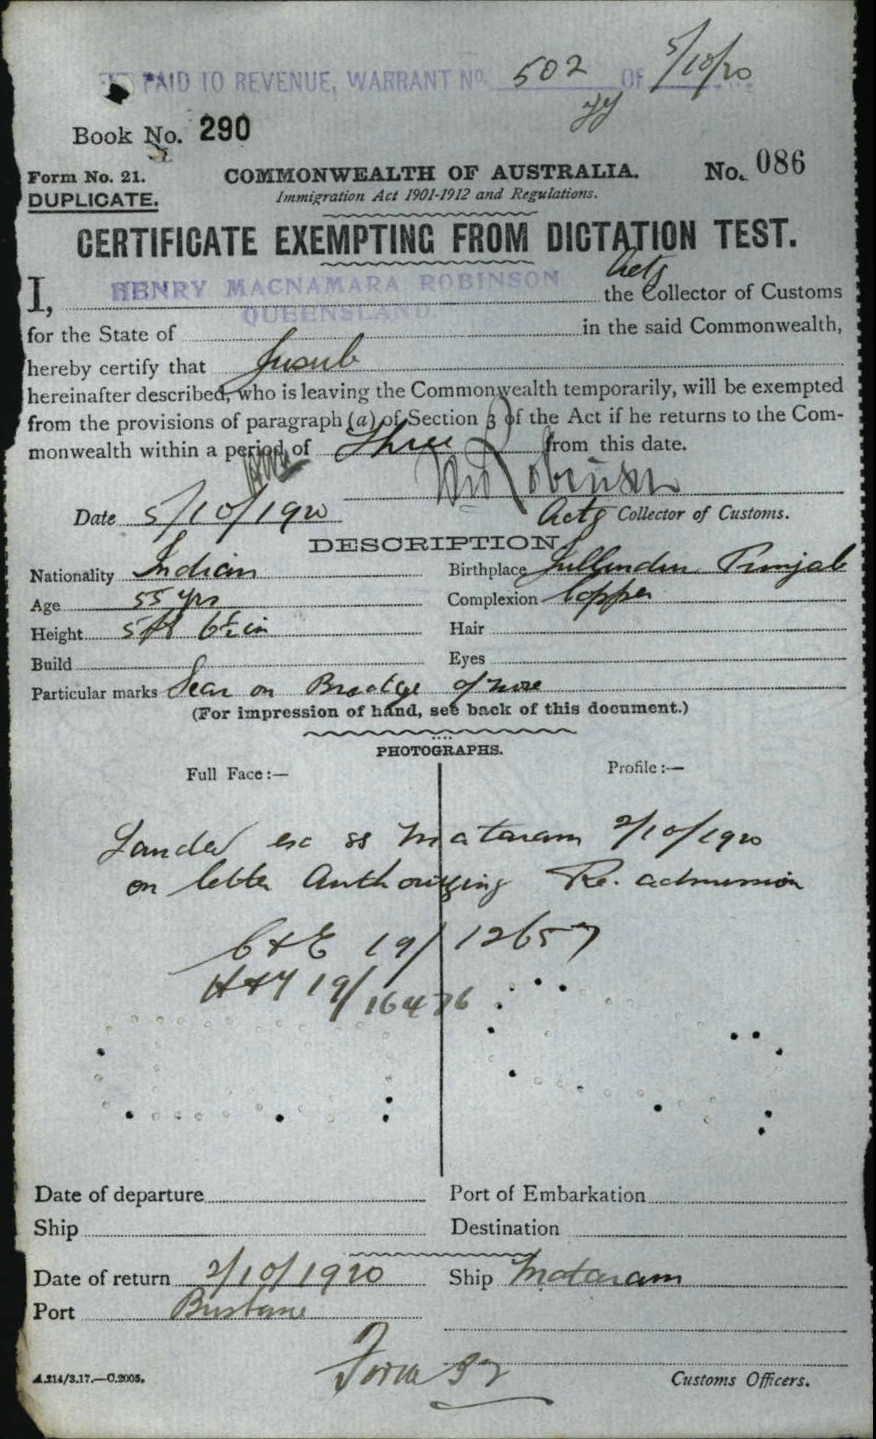 PAID TO REVENUE, WARRANT No. 502 OF 5/10/20
Book No. 290
Form No. 21. COMMONWEALTH OF AUSTRALIA. No. 086
DUPLICATE. Immigration Act 1901-1912 and Regulations.
CERTIFICATE EXEMPTING FROM DICTATION TEST.
Actg
I, HENRY MACNAMARA ROBINSON the Collector of Customs
QUEENSLAND.
for the State of in the said Commonwealth,
hereby certify that Jusub
hereinafter described, who is leaving the Commonwealth temporarily, will be exempted
from the provisions of paragraph (a) of Section 3 of the Act if he returns to the Com-
monwealth within a period of Three from this date.
Robinson
Date 5/10/1920 Actg Collector of Customs.
DESCRIPTION
Nationality Indian Birthplace Jullundur Punjab
Age 55 yrs Complexion Copper
Height 5 ft 6½ in Hair
Build Eyes
Particular marks Scar on Bradge of nose
(For impression of hand, see back of this document.)
PHOTOGRAPHS.
Full Face:— Profile:—
Landed ex ss Mataram 2/10/1920
on letter Authorizing Re. admission
C & E 19/12657
H & T 19/16476
Date of departure Port of Embarkation
Ship Destination
Date of return 2/10/1920 Ship Mataram
Port Brisbane
Form 32
A.214/3.17.—C.2005. Customs Officers.